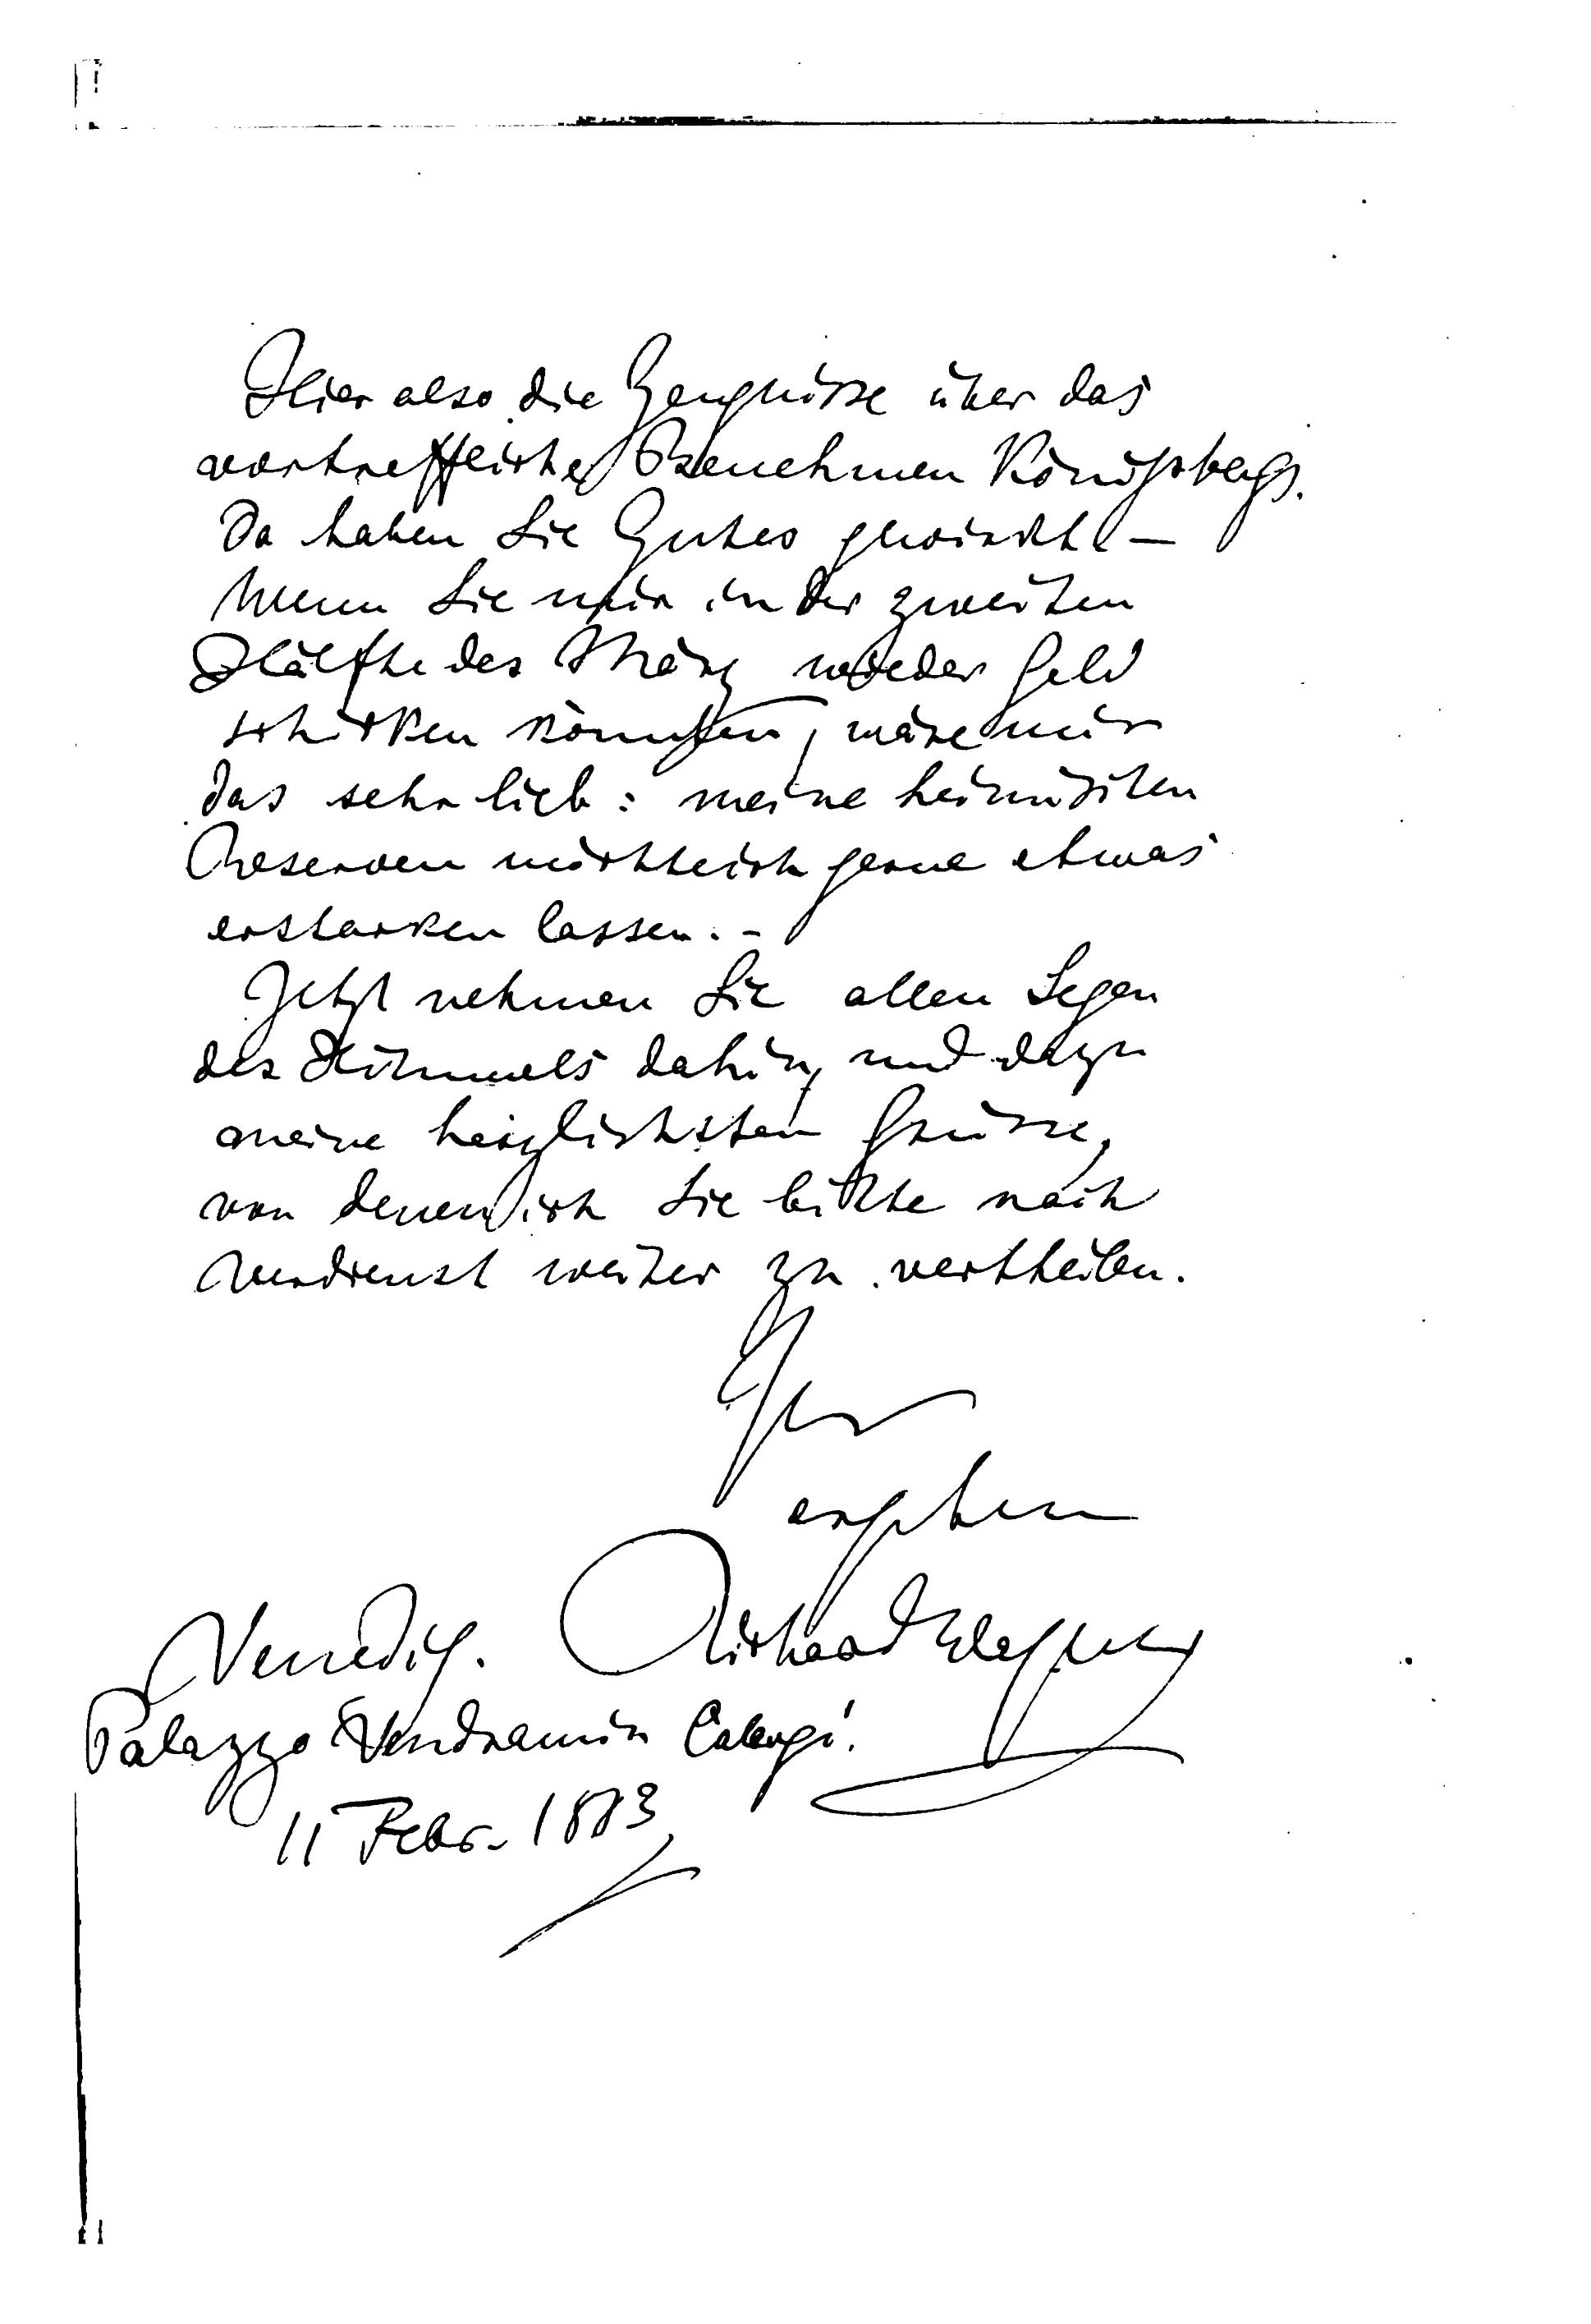 Hier also die Zeugnisse über das
vortreffliche Benehmen Königsbergs.
Da haben Sie Gutes gewirkt –
Wenn Sie mir in der zweiten
Hälfte des März wieder Geld
schicken könnten, wäre mir
das sehr lieb: meine heimischen
Reserven möchte ich gerne etwas
erstarken lassen. –
Jetzt nehmen Sie allen Segen
des Himmels dahin, und dazu
meine herzlichsten Grüsse,
von denen ich Sie bitte nach
Verdienst weiter zu vertheilen.
Ihr
ergebener
Venedig. Richard Wagner
Palazzo Vendramin Calergi.
11 Febr. 1883